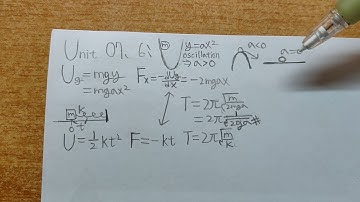 Unit 07. 6:
m y=ax² oscillation ⇒ a>0
a<0
a=0
Ug=mgy
=mgax²
Fx=-dUg/dx=-2mgax
T=2π√(m/2mga)
=2π√(1/2ga) #
m k
0 t
U=½kt² F=-kt T=2π√(m/k)